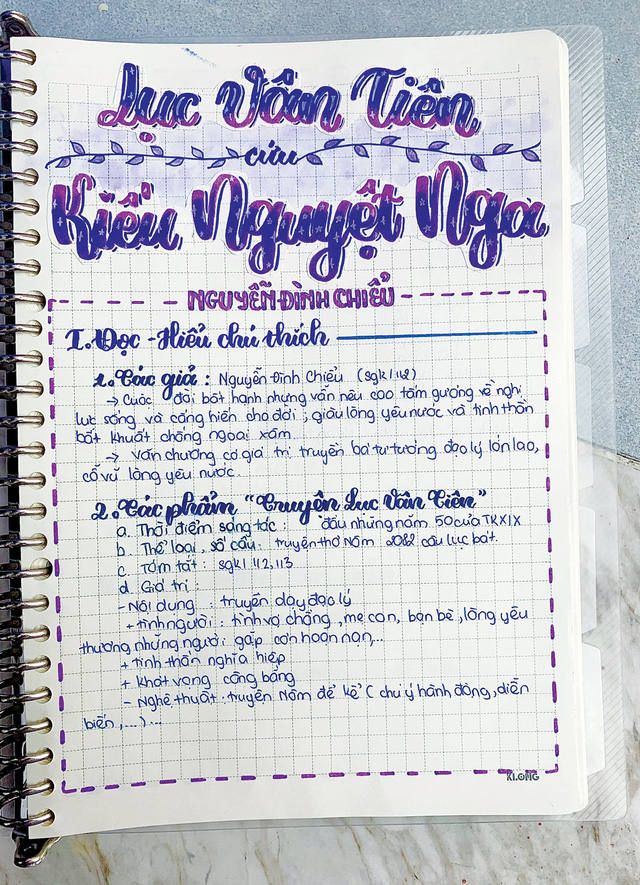 Lục Vân Tiên
cứu
Kiều Nguyệt Nga
NGUYỄN ĐÌNH CHIỂU
I. Đọc - Hiểu chú thích
1. Tác giả : Nguyễn Đình Chiểu (sgk/112)
→ Cuộc đời bất hạnh nhưng vẫn nêu cao tấm gương về nghị
lực sống và cống hiến cho đời ; giàu lòng yêu nước và tinh thần
bất khuất chống ngoại xâm
→ Văn chương có giá trị truyền bá tư tưởng đạo lý lớn lao,
cổ vũ lòng yêu nước.
2. Tác phẩm "Truyện Lục Vân Tiên"
a. Thời điểm sáng tác : đầu những năm 50 của TK XIX
b. Thể loại, số câu : truyện thơ Nôm 2082 câu lục bát.
c. Tóm tắt : sgk/112,113
d. Giá trị :
- Nội dung : truyện dạy đạo lý
+ tình người : tình vợ chồng, mẹ con, bạn bè, lòng yêu
thương những người gặp cơn hoạn nạn,...
+ tinh thần nghĩa hiệp
+ khát vọng công bằng
- Nghệ thuật : truyện Nôm để kể ( chú ý hành động, diễn
biến,...) ...
KLONG